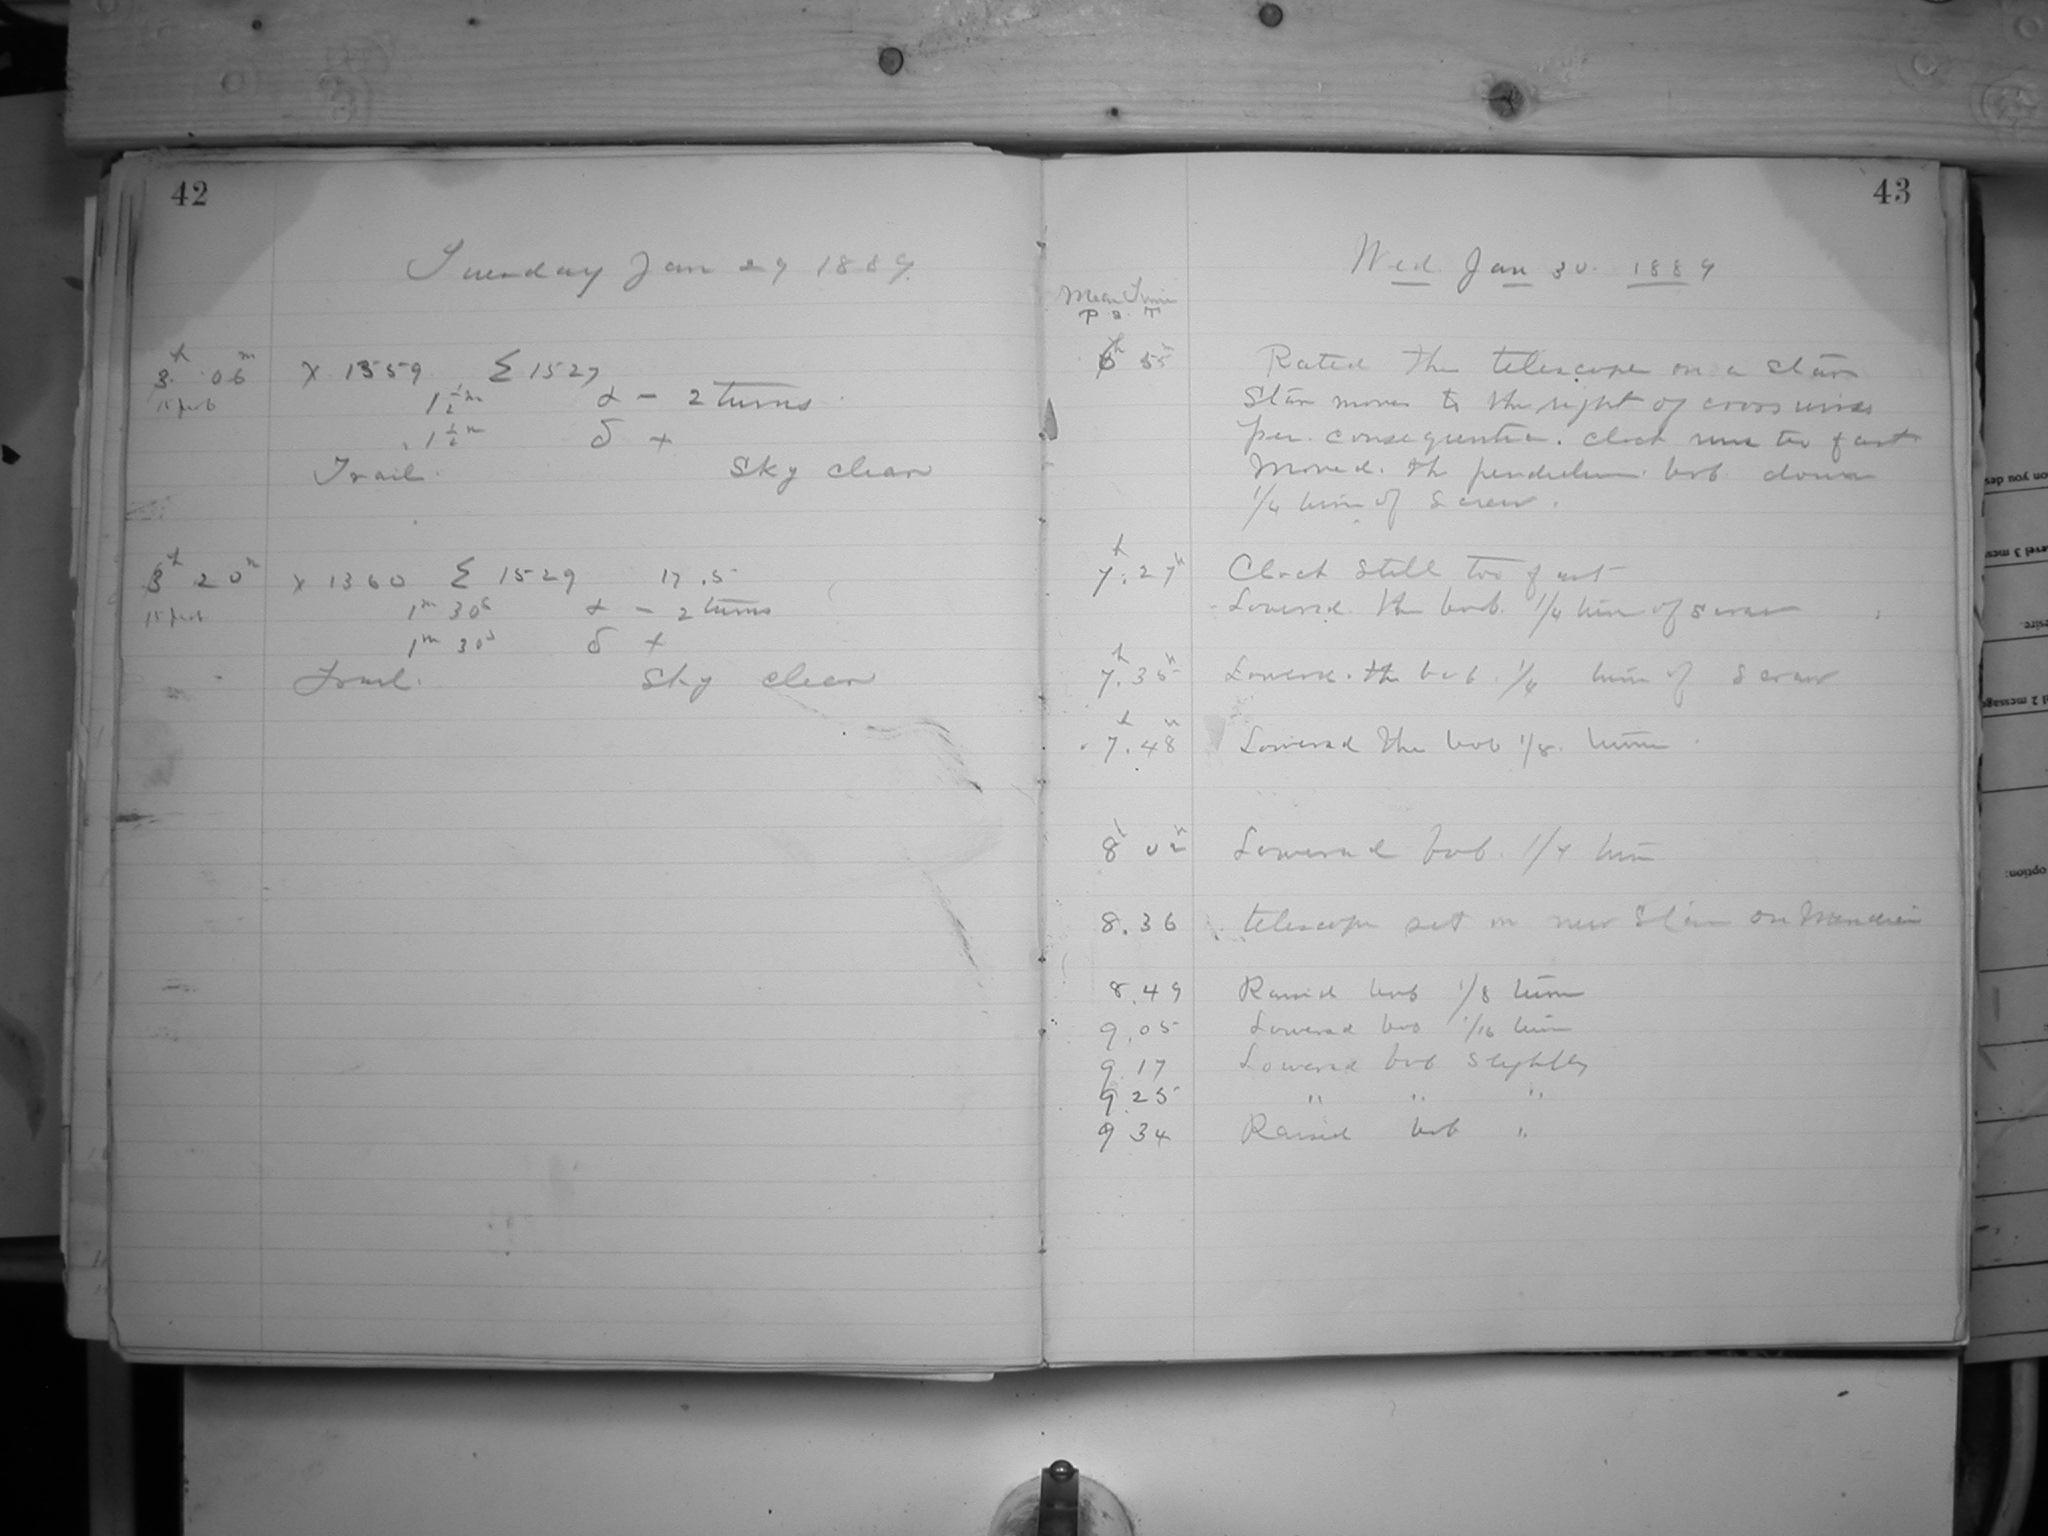 42
Tuesday Jan 29 1889
3h 06m X 1359 Σ 1527
1 1/2 m α - 2 turns
1 1/2 m δ +
Trail. Sky clear
3h 20m X 1360 Σ 1529 17.5
1m 30s α - 2 turns
1m 30s δ +
Trail. Sky clear
43
Wed. Jan 30. 1889
Mean Time
P. S. T
6h 55m Rated the telescope on a star
Star moves to the right of cross wires
per. consequentia. clock runs too fast
Moved the pendulum bob down
1/4 turn of screw.
7h.27m Clock still too fast
Lowered the bob 1/4 turn of screw
7h.35m Lowered the bob 1/4 turn of screw
7h.48m Lowered the bob 1/8 turn
8h 02m Lowered bob 1/4 turn
8.36 telescope set on new star on Meridian
8.49 Raised bob 1/8 turn
9.05 Lowered bob 1/16 turn
9.17 Lowered bob slightly
9.25 " " "
9 34 Raised bob "
on you des
evel 3 mes
esire.
el 2 message
option: